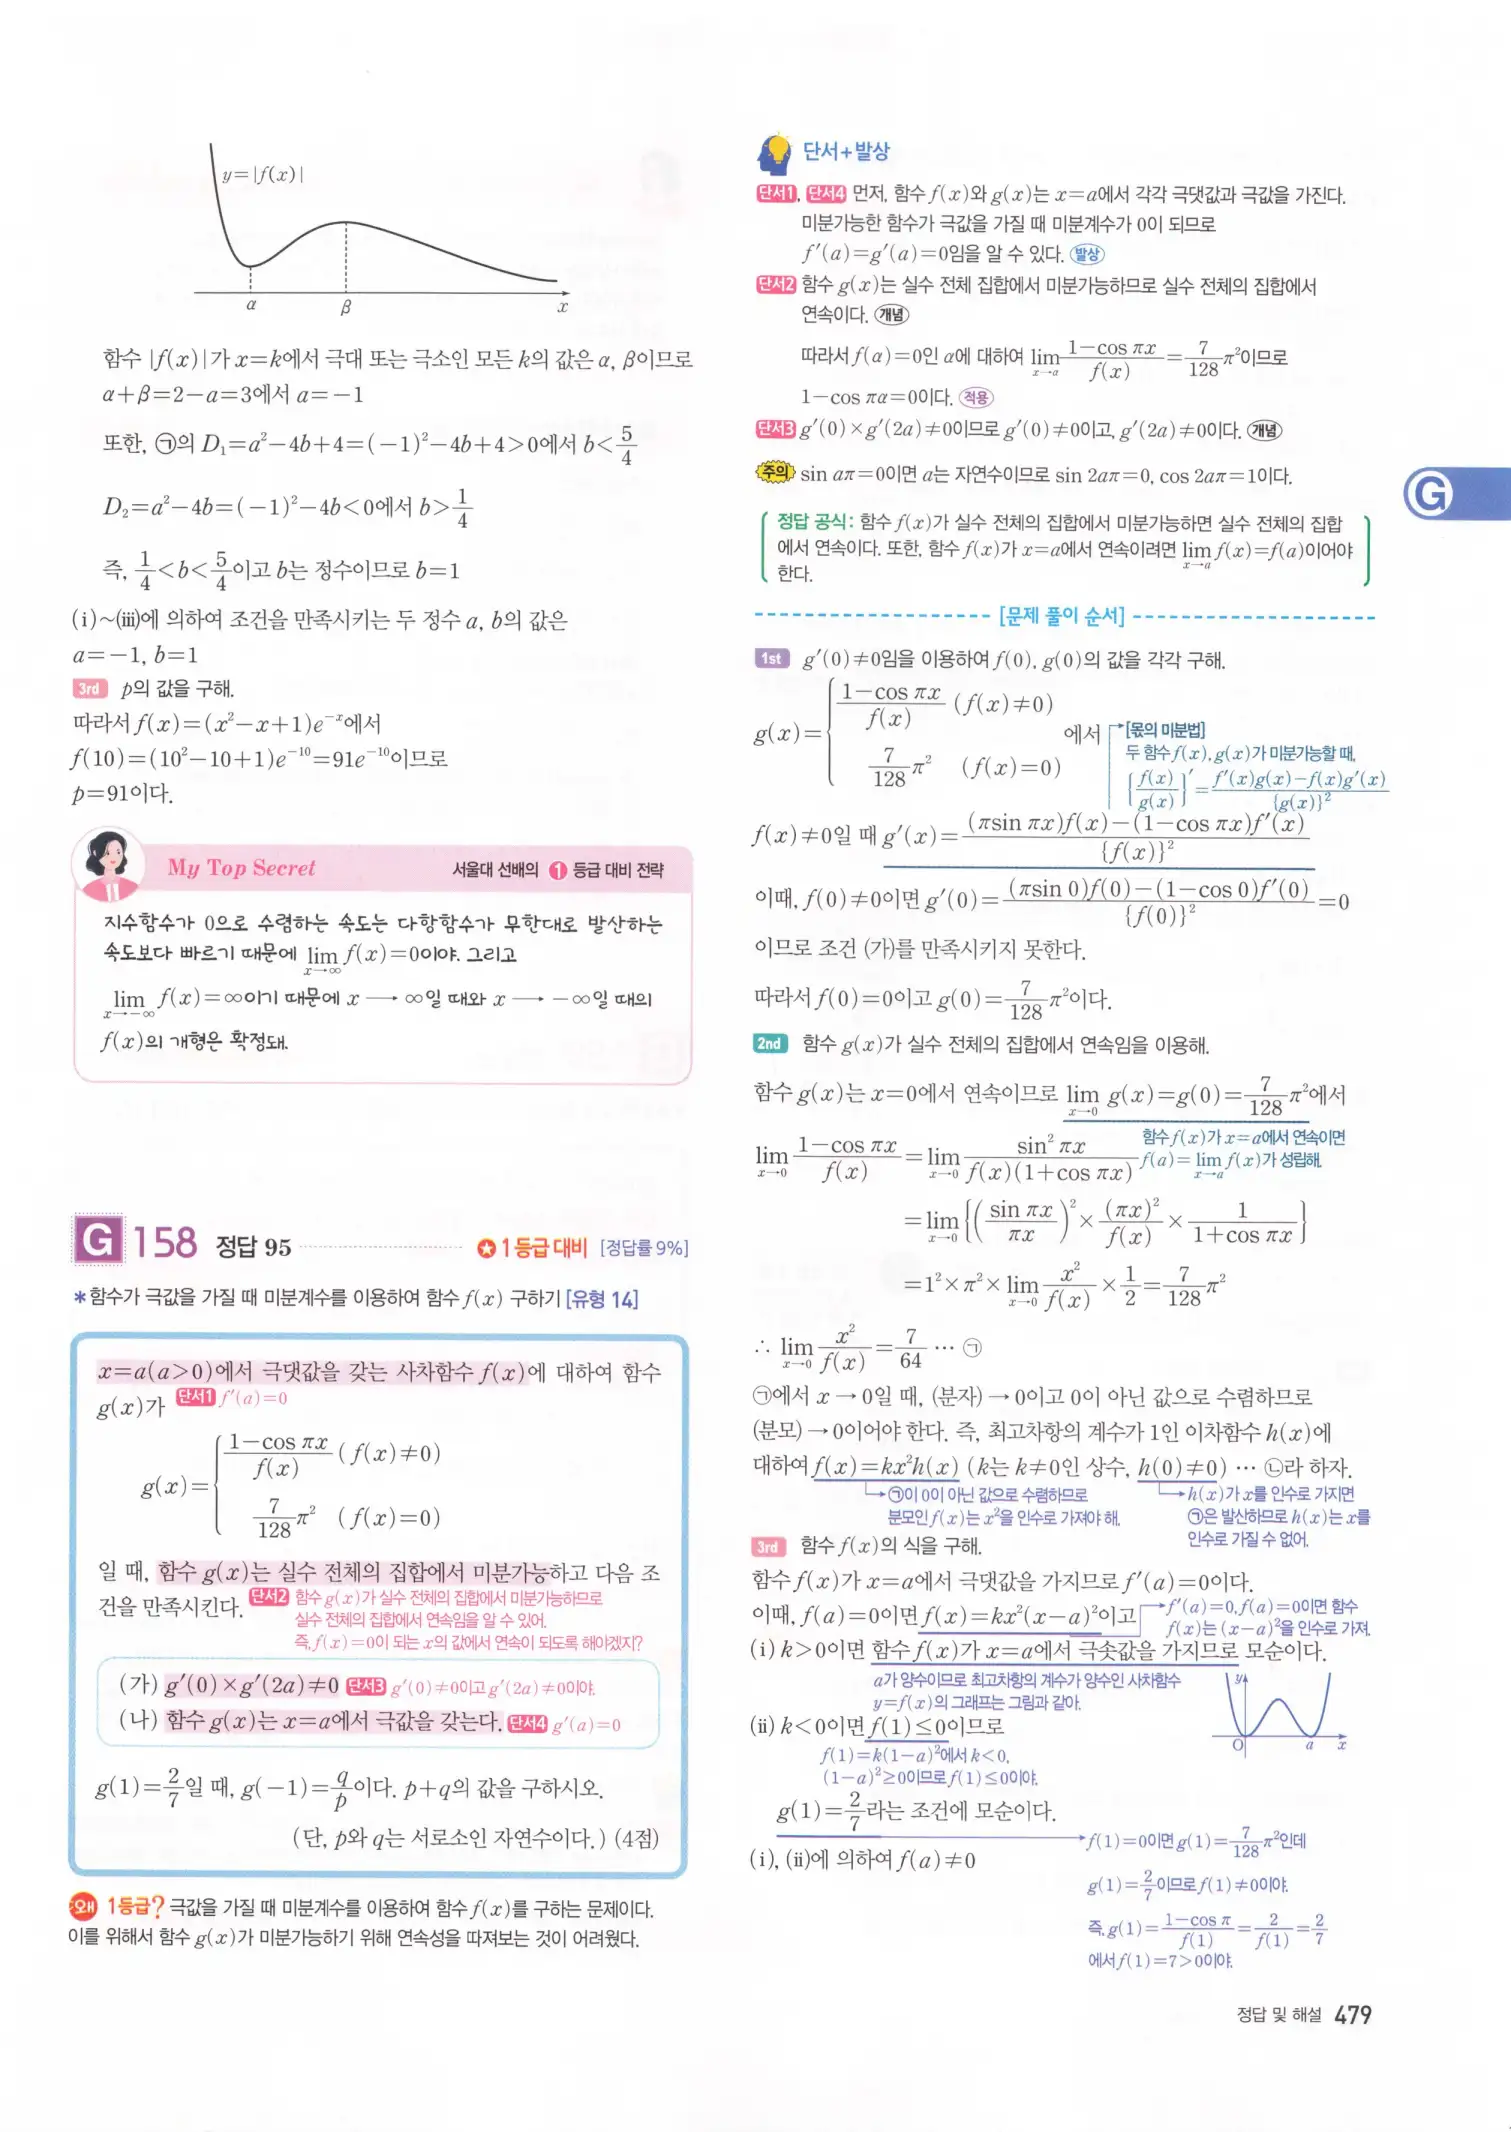 y=|f(x)|
α β x
함수 |f(x)|가 x=k에서 극대 또는 극소인 모든 k의 값은 α, β이므로
α+β=2-a=3에서 a=-1
또한, ㉠의 D₁=a²-4b+4=(-1)²-4b+4>0에서 b<5/4
D₂=a²-4b=(-1)²-4b<0에서 b>1/4
즉, 1/4<b<5/4이고 b는 정수이므로 b=1
(ⅰ)~(ⅲ)에 의하여 조건을 만족시키는 두 정수 a, b의 값은
a=-1, b=1
3rd p의 값을 구해.
따라서 f(x)=(x²-x+1)e⁻ˣ에서
f(10)=(10²-10+1)e⁻¹⁰=91e⁻¹⁰이므로
p=91이다.
My Top Secret 서울대 선배의 1등급 대비 전략
지수함수가 0으로 수렴하는 속도는 다항함수가 무한대로 발산하는
속도보다 빠르기 때문에 lim_{x→∞} f(x)=0이야. 그리고
lim_{x→-∞} f(x)=∞이기 때문에 x → ∞일 때와 x → -∞일 때의
f(x)의 개형은 확정돼.
G 158 정답 95 ✪ 1등급 대비 [정답률 9%]
*함수가 극값을 가질 때 미분계수를 이용하여 함수 f(x) 구하기 [유형 14]
x=a(a>0)에서 극댓값을 갖는 사차함수 f(x)에 대하여 함수
g(x)가 단서1 f'(a)=0
g(x)={ (1-cos πx)/f(x) (f(x)≠0)
7/128 π² (f(x)=0)
일 때, 함수 g(x)는 실수 전체의 집합에서 미분가능하고 다음 조
건을 만족시킨다. 단서2 함수 g(x)가 실수 전체의 집합에서 미분가능하므로
실수 전체의 집합에서 연속임을 알 수 있어.
즉, f(x)=0이 되는 x의 값에서 연속이 되도록 해야겠지?
(가) g'(0)×g'(2a)≠0 단서3 g'(0)≠0이고 g'(2a)≠0이야.
(나) 함수 g(x)는 x=a에서 극값을 갖는다. 단서4 g'(a)=0
g(1)=2/7일 때, g(-1)=q/p이다. p+q의 값을 구하시오.
(단, p와 q는 서로소인 자연수이다.) (4점)
왜 1등급? 극값을 가질 때 미분계수를 이용하여 함수 f(x)를 구하는 문제이다.
이를 위해서 함수 g(x)가 미분가능하기 위해 연속성을 따져보는 것이 어려웠다.
단서+발상
단서1, 단서4 먼저, 함수 f(x)와 g(x)는 x=a에서 각각 극댓값과 극값을 가진다.
미분가능한 함수가 극값을 가질 때 미분계수가 0이 되므로
f'(a)=g'(a)=0임을 알 수 있다. 발상
단서2 함수 g(x)는 실수 전체 집합에서 미분가능하므로 실수 전체의 집합에서
연속이다. 개념
따라서 f(α)=0인 α에 대하여 lim_{x→α} (1-cos πx)/f(x)=7/128 π²이므로
1-cos πα=0이다. 적용
단서3 g'(0)×g'(2a)≠0이므로 g'(0)≠0이고, g'(2a)≠0이다. 개념
주의 sin aπ=0이면 a는 자연수이므로 sin 2aπ=0, cos 2aπ=1이다.
정답 공식: 함수 f(x)가 실수 전체의 집합에서 미분가능하면 실수 전체의 집합
에서 연속이다. 또한, 함수 f(x)가 x=a에서 연속이려면 lim_{x→a} f(x)=f(a)이어야
한다.
[문제 풀이 순서]
1st g'(0)≠0임을 이용하여 f(0), g(0)의 값을 각각 구해.
g(x)={ (1-cos πx)/f(x) (f(x)≠0)
7/128 π² (f(x)=0) 에서
[몫의 미분법]
두 함수 f(x), g(x)가 미분가능할 때,
{f(x)/g(x)}'=(f'(x)g(x)-f(x)g'(x))/{g(x)}²
f(x)≠0일 때 g'(x)=((πsin πx)f(x)-(1-cos πx)f'(x))/{f(x)}²
이때, f(0)≠0이면 g'(0)=((πsin 0)f(0)-(1-cos 0)f'(0))/{f(0)}²=0
이므로 조건 (가)를 만족시키지 못한다.
따라서 f(0)=0이고 g(0)=7/128 π²이다.
2nd 함수 g(x)가 실수 전체의 집합에서 연속임을 이용해.
함수 g(x)는 x=0에서 연속이므로 lim_{x→0} g(x)=g(0)=7/128 π²에서
함수 f(x)가 x=a에서 연속이면
f(a)=lim_{x→a} f(x)가 성립해.
lim_{x→0} (1-cos πx)/f(x)=lim_{x→0} sin² πx/(f(x)(1+cos πx))
=lim_{x→0} {(sin πx/πx)²×(πx)²/f(x)×1/(1+cos πx)}
=1²×π²×lim_{x→0} x²/f(x)×1/2=7/128 π²
∴ lim_{x→0} x²/f(x)=7/64 … ㉠
㉠에서 x → 0일 때, (분자) → 0이고 0이 아닌 값으로 수렴하므로
(분모) → 0이어야 한다. 즉, 최고차항의 계수가 1인 이차함수 h(x)에
대하여 f(x)=kx²h(x) (k는 k≠0인 상수, h(0)≠0) … ㉡라 하자.
㉠이 0이 아닌 값으로 수렴하므로
분모인 f(x)는 x²을 인수로 가져야 해.
h(x)가 x를 인수로 가지면
㉠은 발산하므로 h(x)는 x를
인수로 가질 수 없어.
3rd 함수 f(x)의 식을 구해.
함수 f(x)가 x=a에서 극댓값을 가지므로 f'(a)=0이다.
이때, f(a)=0이면 f(x)=kx²(x-a)²이고
f'(a)=0, f(a)=0이면 함수
f(x)는 (x-a)²을 인수로 가져.
(ⅰ) k>0이면 함수 f(x)가 x=a에서 극솟값을 가지므로 모순이다.
a가 양수이므로 최고차항의 계수가 양수인 사차함수
y=f(x)의 그래프는 그림과 같아.
y
O a x
(ⅱ) k<0이면 f(1)≤0이므로
f(1)=k(1-a)²에서 k<0,
(1-a)²≥0이므로 f(1)≤0이야.
g(1)=2/7라는 조건에 모순이다.
f(1)=0이면 g(1)=7/128 π²인데
g(1)=2/7이므로 f(1)≠0이야.
즉, g(1)=(1-cos π)/f(1)=2/f(1)=2/7
에서 f(1)=7>0이야.
(ⅰ), (ⅱ)에 의하여 f(a)≠0
G
정답 및 해설 479